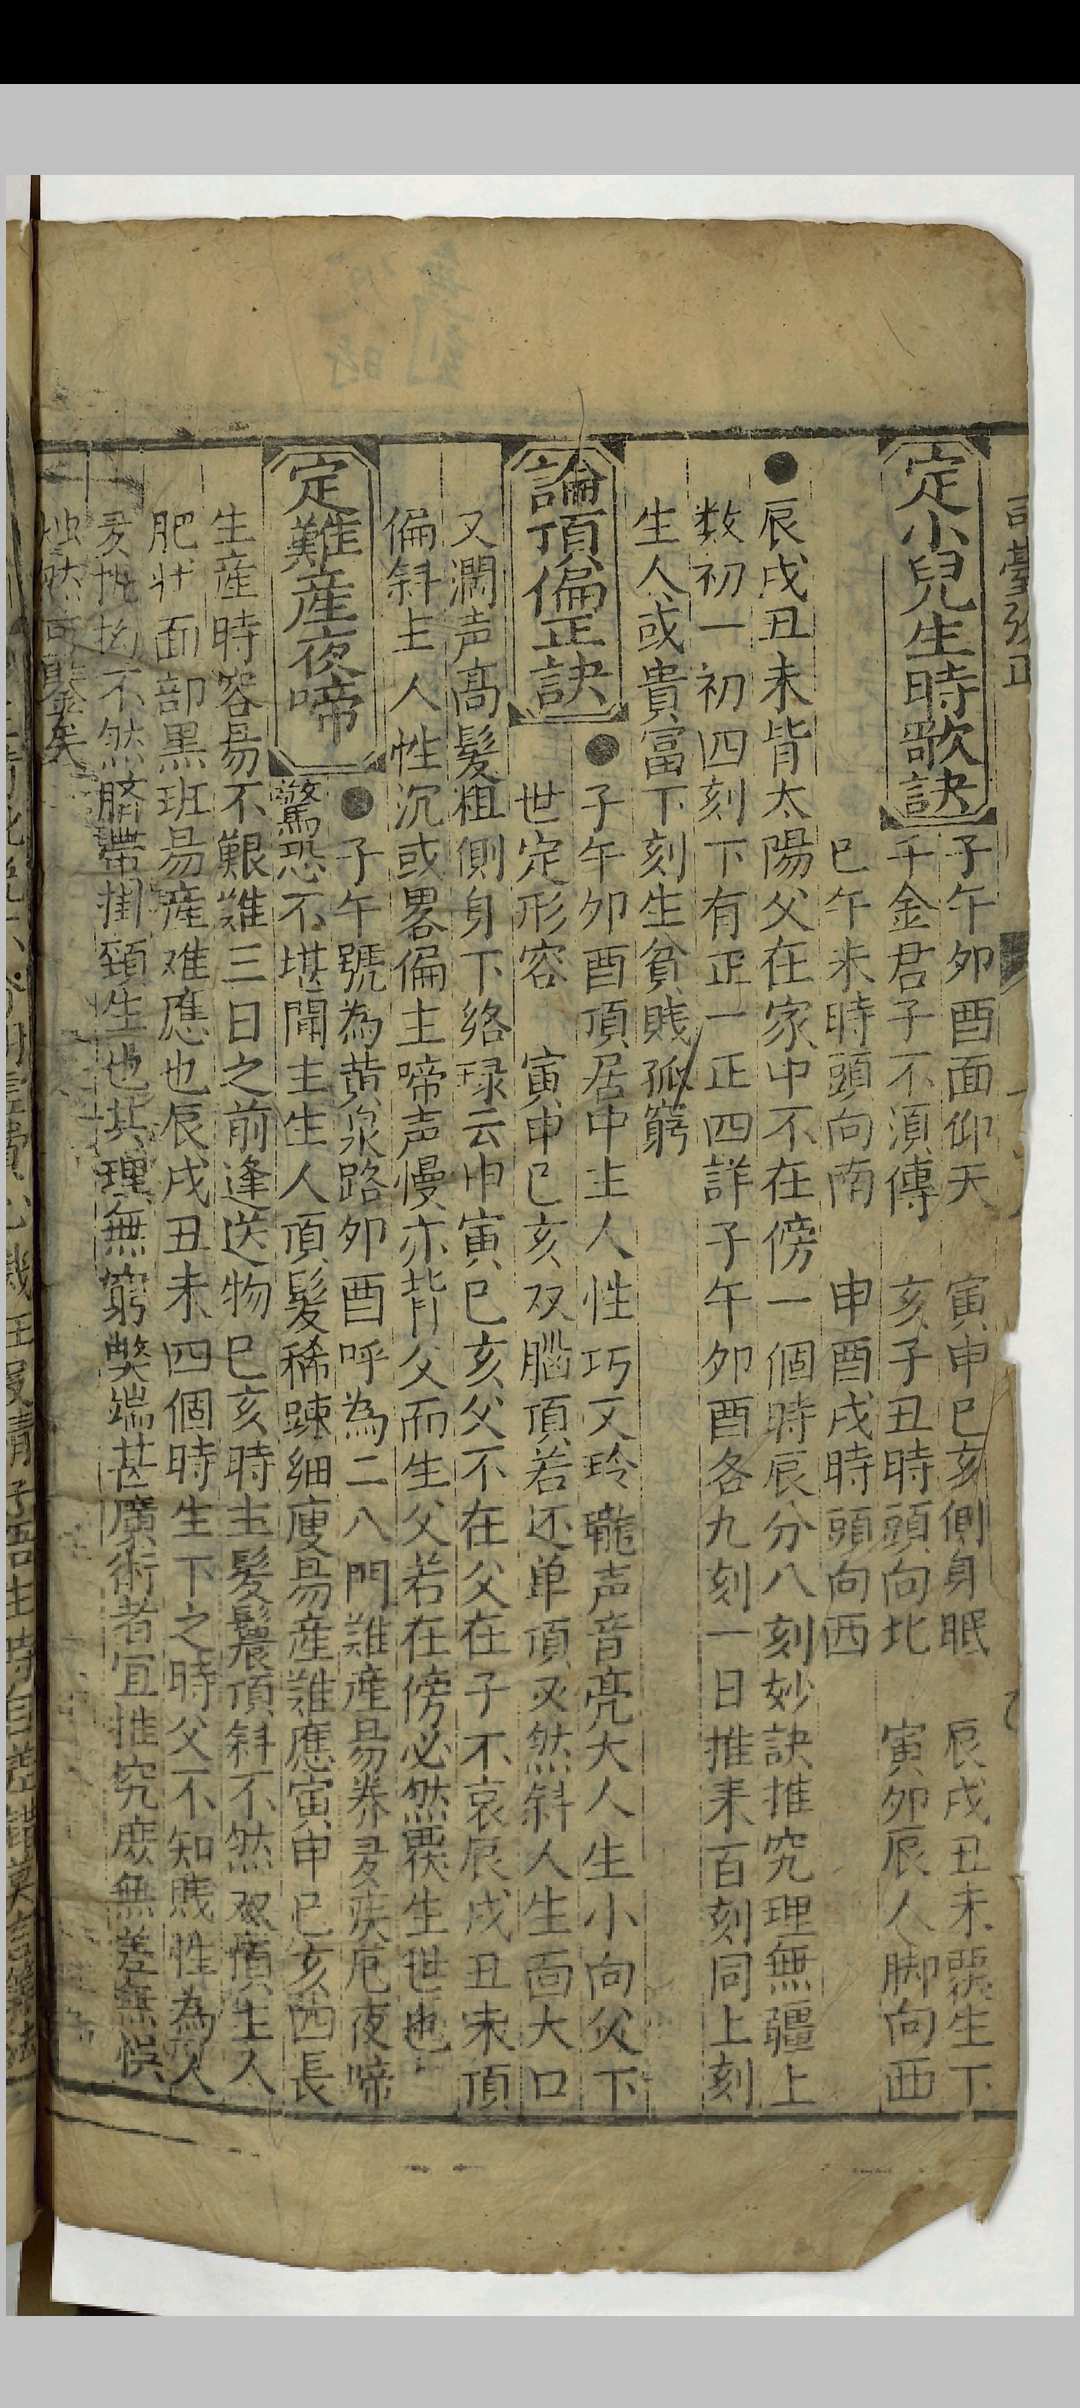 司臺㳒正
定小兒生時歌訣
子午夘酉面仰天 寅申巳亥側身眠 辰戌丑未覆生下
千金君子不須傳 亥子丑時頭向北 寅夘辰人脚向西
巳午未時頭向南 申酉戌時頭向西
●辰戌丑未背太陽父在家中不在傍一個時辰分八刻妙訣推究理無疆上
数初一初四刻下有正一正四詳子午夘酉各九刻一日推来百刻同上刻
生人或貴富下刻生貧賎孤窮
論頂偏正訣
●子午夘酉頂居中主人性巧又玲瓏声音亮大人生小向父下
世定形容 寅申巳亥双腦頂若还单頂又然斜人生面大口
又濶声髙髮粗側身下絡琭云申寅巳亥父不在父在子不哀辰戌丑未頂
偏斜主人性沉或畧偏主啼声慢亦背父而生父若在傍必然覆生世也
定難産夜啼
●子午號為黄泉路夘酉呼為二八門難産易养多疾厄夜啼
驚恐不堪聞主生人頂髮稀踈細瘦易産難應寅申巳亥四長
生産時容昜不艱難三日之前逢送物巳亥時主髮鬟頂斜不然双頂主人
肥壮面部黒班昜産难應也辰戌丑未四個時生下之時父不知賎性為人
多执拗不然臍帶掛頸生也其理無窮獘端甚廣術者宜推究庶無差無悞
然可鑒矣